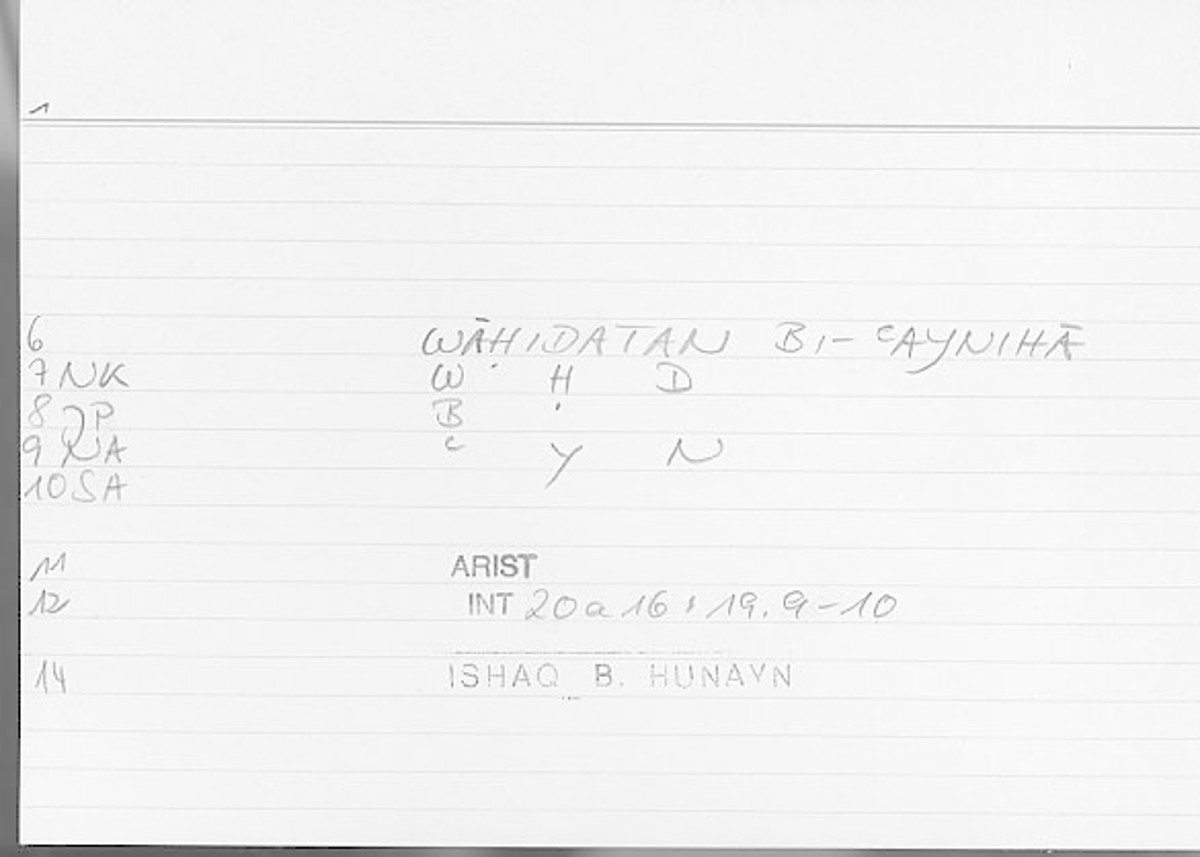 1
6 WĀḤIDATAN BI- ᶜAYNIHĀ
7 NK W Ḥ D
8 JP B
9 NA ᶜ Y N
10 SA
11 ARIST
12 INT 20a 16 ; 19.9-10
14 ISHAQ B. HUNAYN